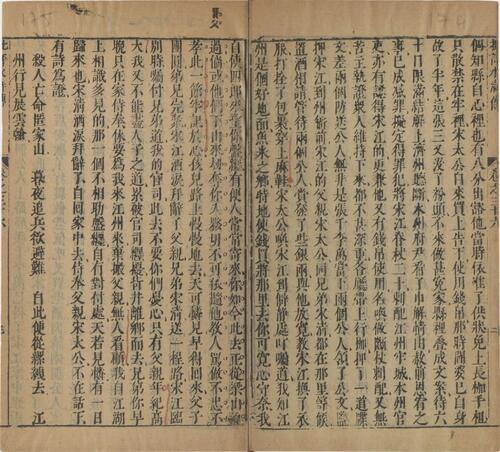 俱知縣自心裡也有八分出豁他當時依准了供狀免上長枷手杻
只散禁在牢裡宋太公自來買上告下使用錢帛那時閻婆已自身
故了半年這張三又沒了粉頭不來做甚冤家縣裡疊成文案待六
十日限滿結解上濟州聽斷本州府尹看了申解情由赦前恩宥之
事已成減罪擬定得罪犯將宋江脊杖二十刺配江州牢城本州官
吏亦有認得宋江的更兼他又有錢帛使用名喚做斷杖刺配又無
苦主執證眾人維持下來都不甚深重當廳帶上行枷押了一道牒
文差兩個防送公人無非是張千李萬當下兩個公人領了公文監
押宋江到州衙前宋江的父親宋太公同兄弟宋清都在那里等候
置酒相請管待兩個公人齎發了些銀兩與他放寬教宋江換了衣
服打拴了包裹穿上麻鞋宋太公喚宋江到僻靜處叮囑道我知江
州是個好地面魚米之鄉特地使錢買將那里去你可寬心守奈我
自使四郎來望你盤纏有便人常常寄來你如今此去正從梁山泊
過倘或他們下山來劫奪你入夥切不可依隨他教人罵做不忠不
孝此一節牢記於心孩兒路上慢慢地去天可憐見早得回來父子
團圓弟兄完聚宋江洒淚拜辭了父親兄弟宋清送一程路宋江臨
別時囑付兄弟道我的官司此去不要你們憂心只有父親年紀高
大我又不能盡人子之道累被官司纏擾背井離鄉而去兄弟你早
晚只在家侍奉休要為我來江州來棄擲父親無人看顧我自江湖
上相識多見的那一個不相助盤纏自有對付處天若見憐有一日
歸來也宋清洒淚拜辭了自回家中去侍奉父親宋太公不在話下
有詩為證
殺人亡命匿家山 暮夜追兵欲避難 自此便從縲絏去 江
州行見展雲翰